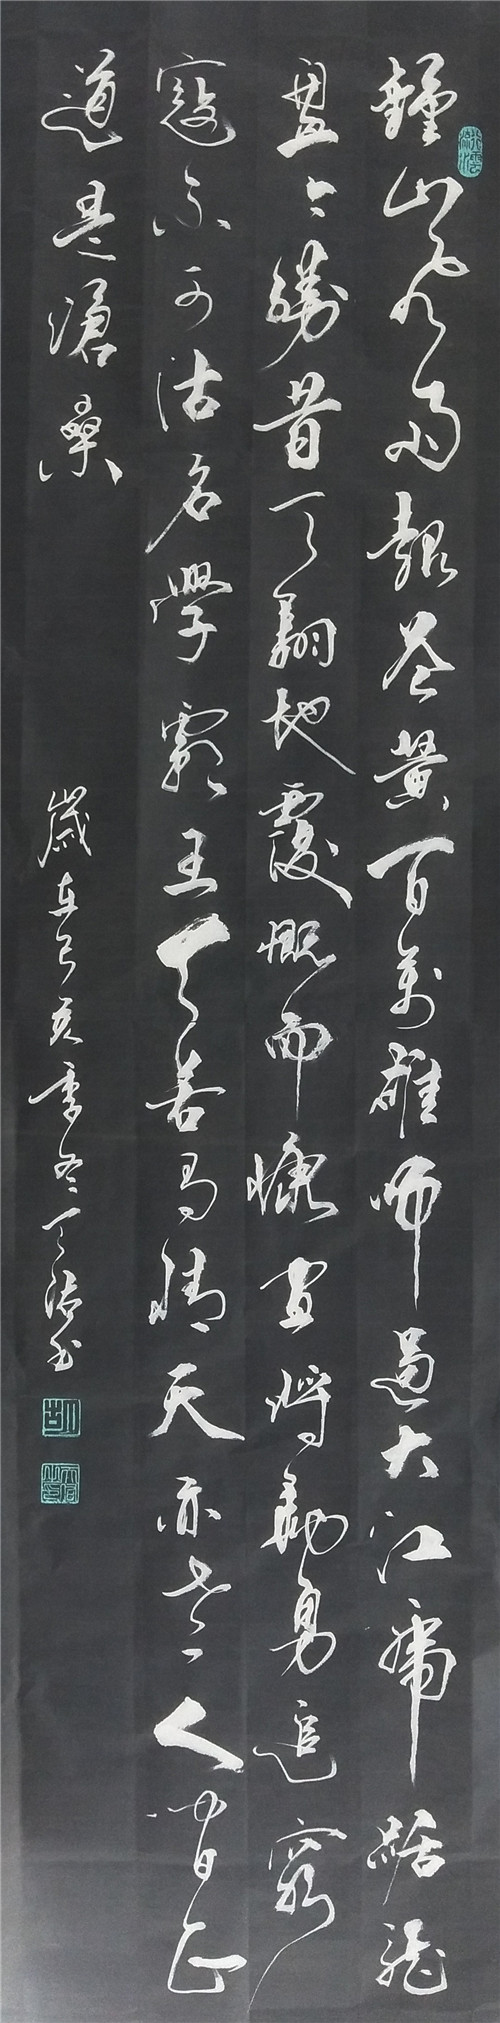 鍾山風雨起蒼黃百萬雄師過大江虎踞龍
盤今勝昔天翻地覆慨而慷宜將剩勇追窮
寇不可沽名學霸王天若有情天亦老人間正
道是滄桑
歲在己亥季冬天浩书